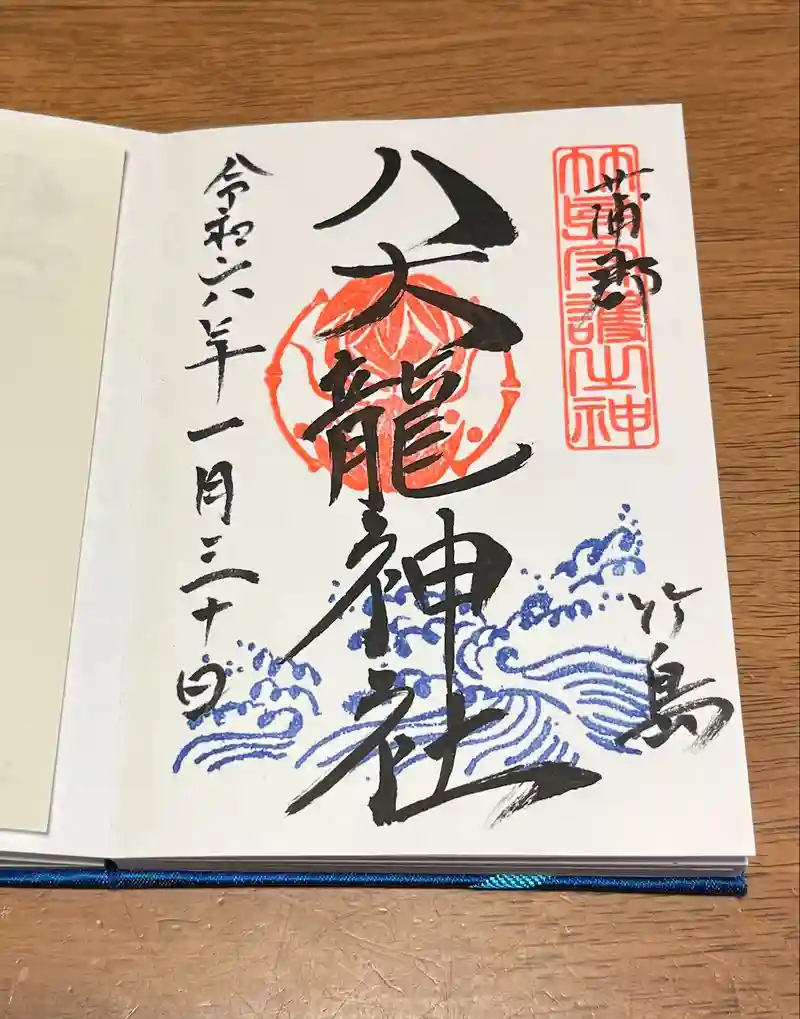 蒲郡
竹島
竹島守護之神
八大龍神社
令和六年一月三十日